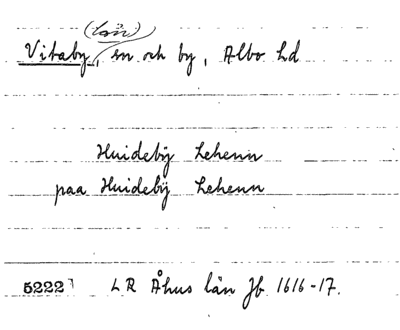 (län)
Vitaby, sn och by, Albo hd
Huidebÿ Lehenn
paa Huidebÿ Lehenn
5222 LR Åhus län Jb 1616-17.